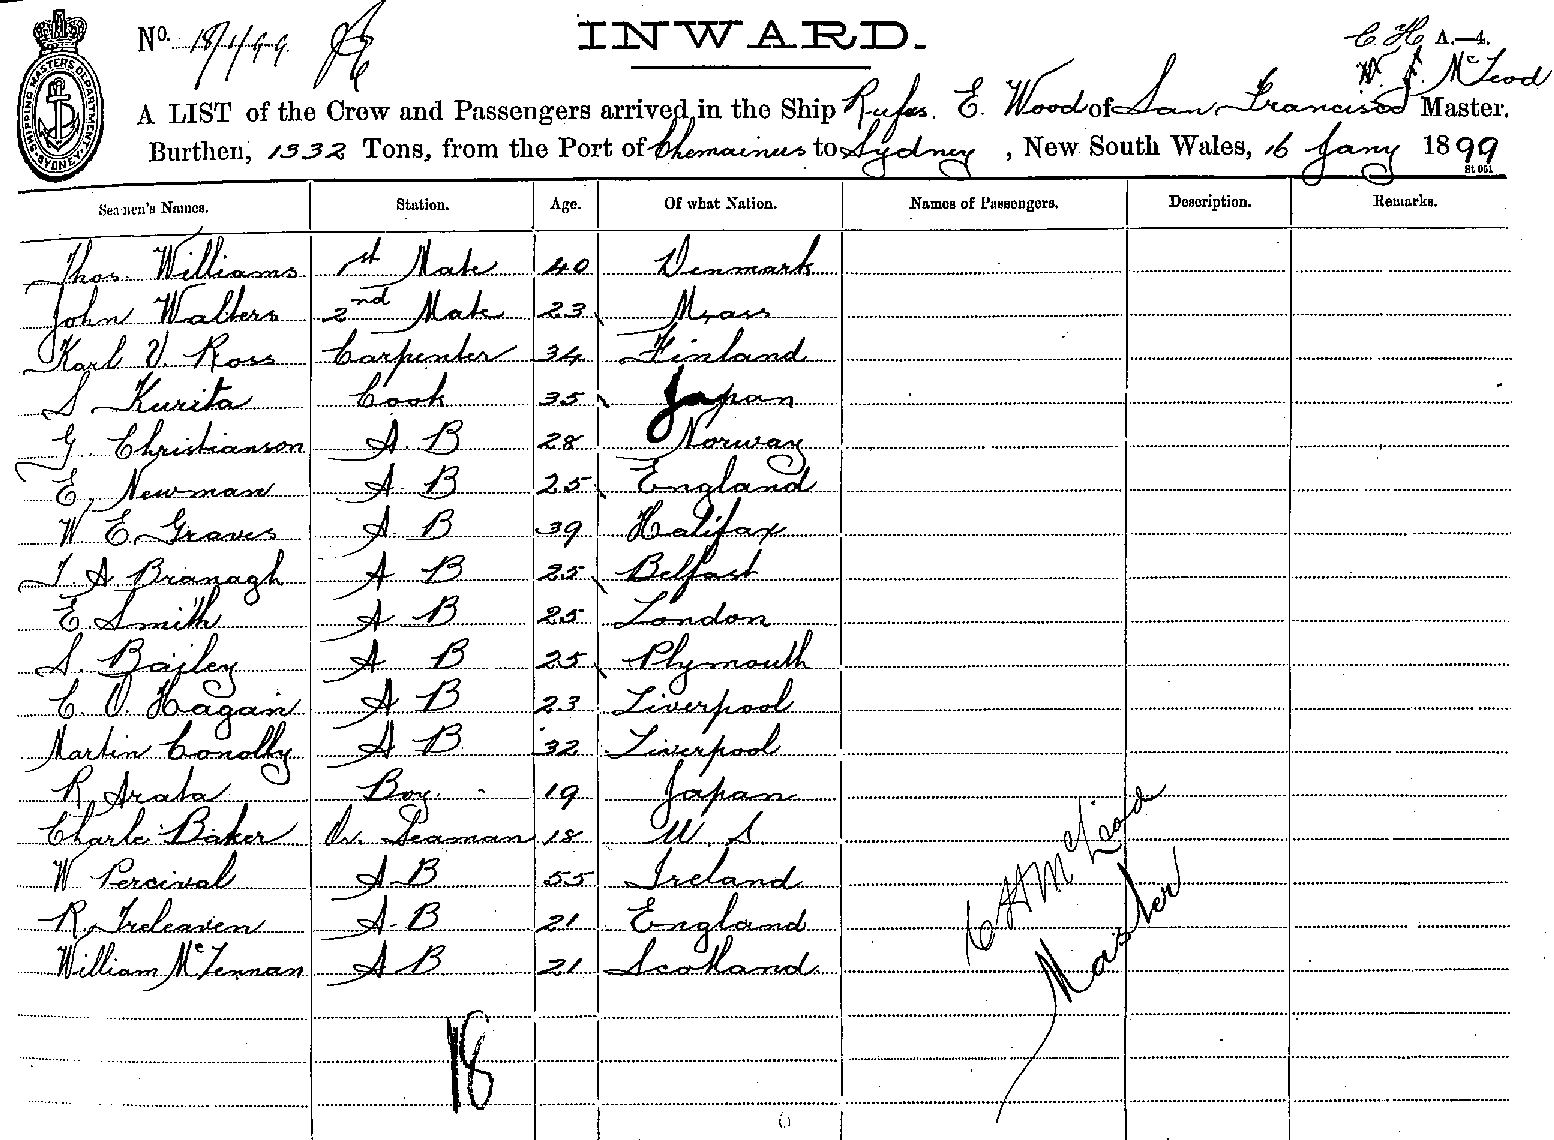 No. 18/1/99
INWARD.
C H A.—4.
W. S. McLeod
A LIST of the Crew and Passengers arrived in the Ship Rufus. E. Wood of San Francisco Master.
Burthen, 1332 Tons, from the Port of Chemainus to Sydney, New South Wales, 16 Jany 1899
St 051
SHIPPING MASTER'S DEPARTMENT
Seamen's Names. Station. Age. Of what Nation. Names of Passengers. Description. Remarks.
Thos. Williams 1st Mate 40 Denmark
John Walters 2nd Mate 23 Mass
Karl V. Ross Carpenter 34 Finland
S Kurita Cook 35 Japan
G. Christianson A. B 28 Norway
E. Newman A B 25 England
W E. Graves A. B 39 Halifax
T. A Branagh A B 25 Belfast
E Smith A B 25 London
S. Bailey A B 25 Plymouth
C. O. Hagan A B 23 Liverpool
Martin Conolly A B 32 Liverpool
R. Arata Boy. 19 Japan
Charle Baker Or. Seaman 18 U. S.
W Percival A B 55 Ireland
R. Treleaven A. B 21 England
William McLennan A B 21 Scotland
C H McLeod
Master
18